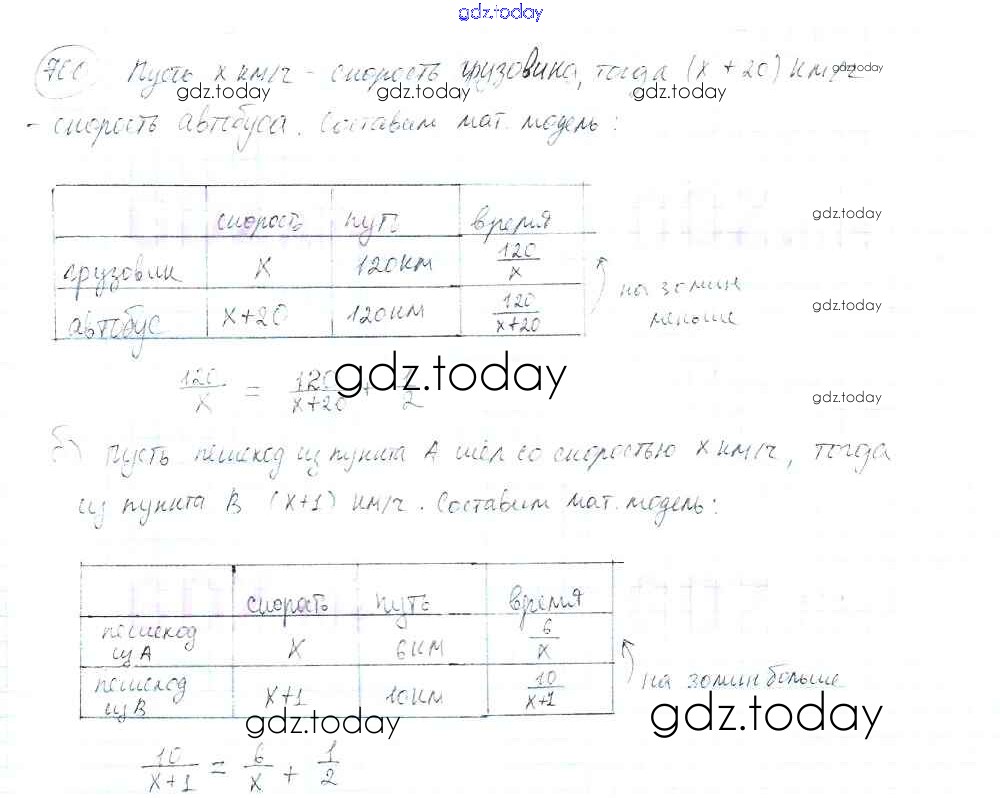 gdz.today
700 Пусть x км/ч - скорость грузовика, тогда (x + 20) км/ч
gdz.today
gdz.today gdz.today
- скорость автобуса. Составим мат. модель:
скорость путь время
gdz.today
грузовик x 120км 120/x
на 30мин меньше
автобус x+20 120км 120/x+20
gdz.today
120/x = 120/x+20 + 1/2
gdz.today
gdz.today
б) Пусть пешеход из пункта A шел со скоростью x км/ч, тогда
из пункта B (x+1) км/ч. Составим мат. модель:
скорость путь время
пешеход из A x 6км 6/x
на 30мин больше
пешеход из B x+1 10км 10/x+1
gdz.today gdz.today
10/x+1 = 6/x + 1/2